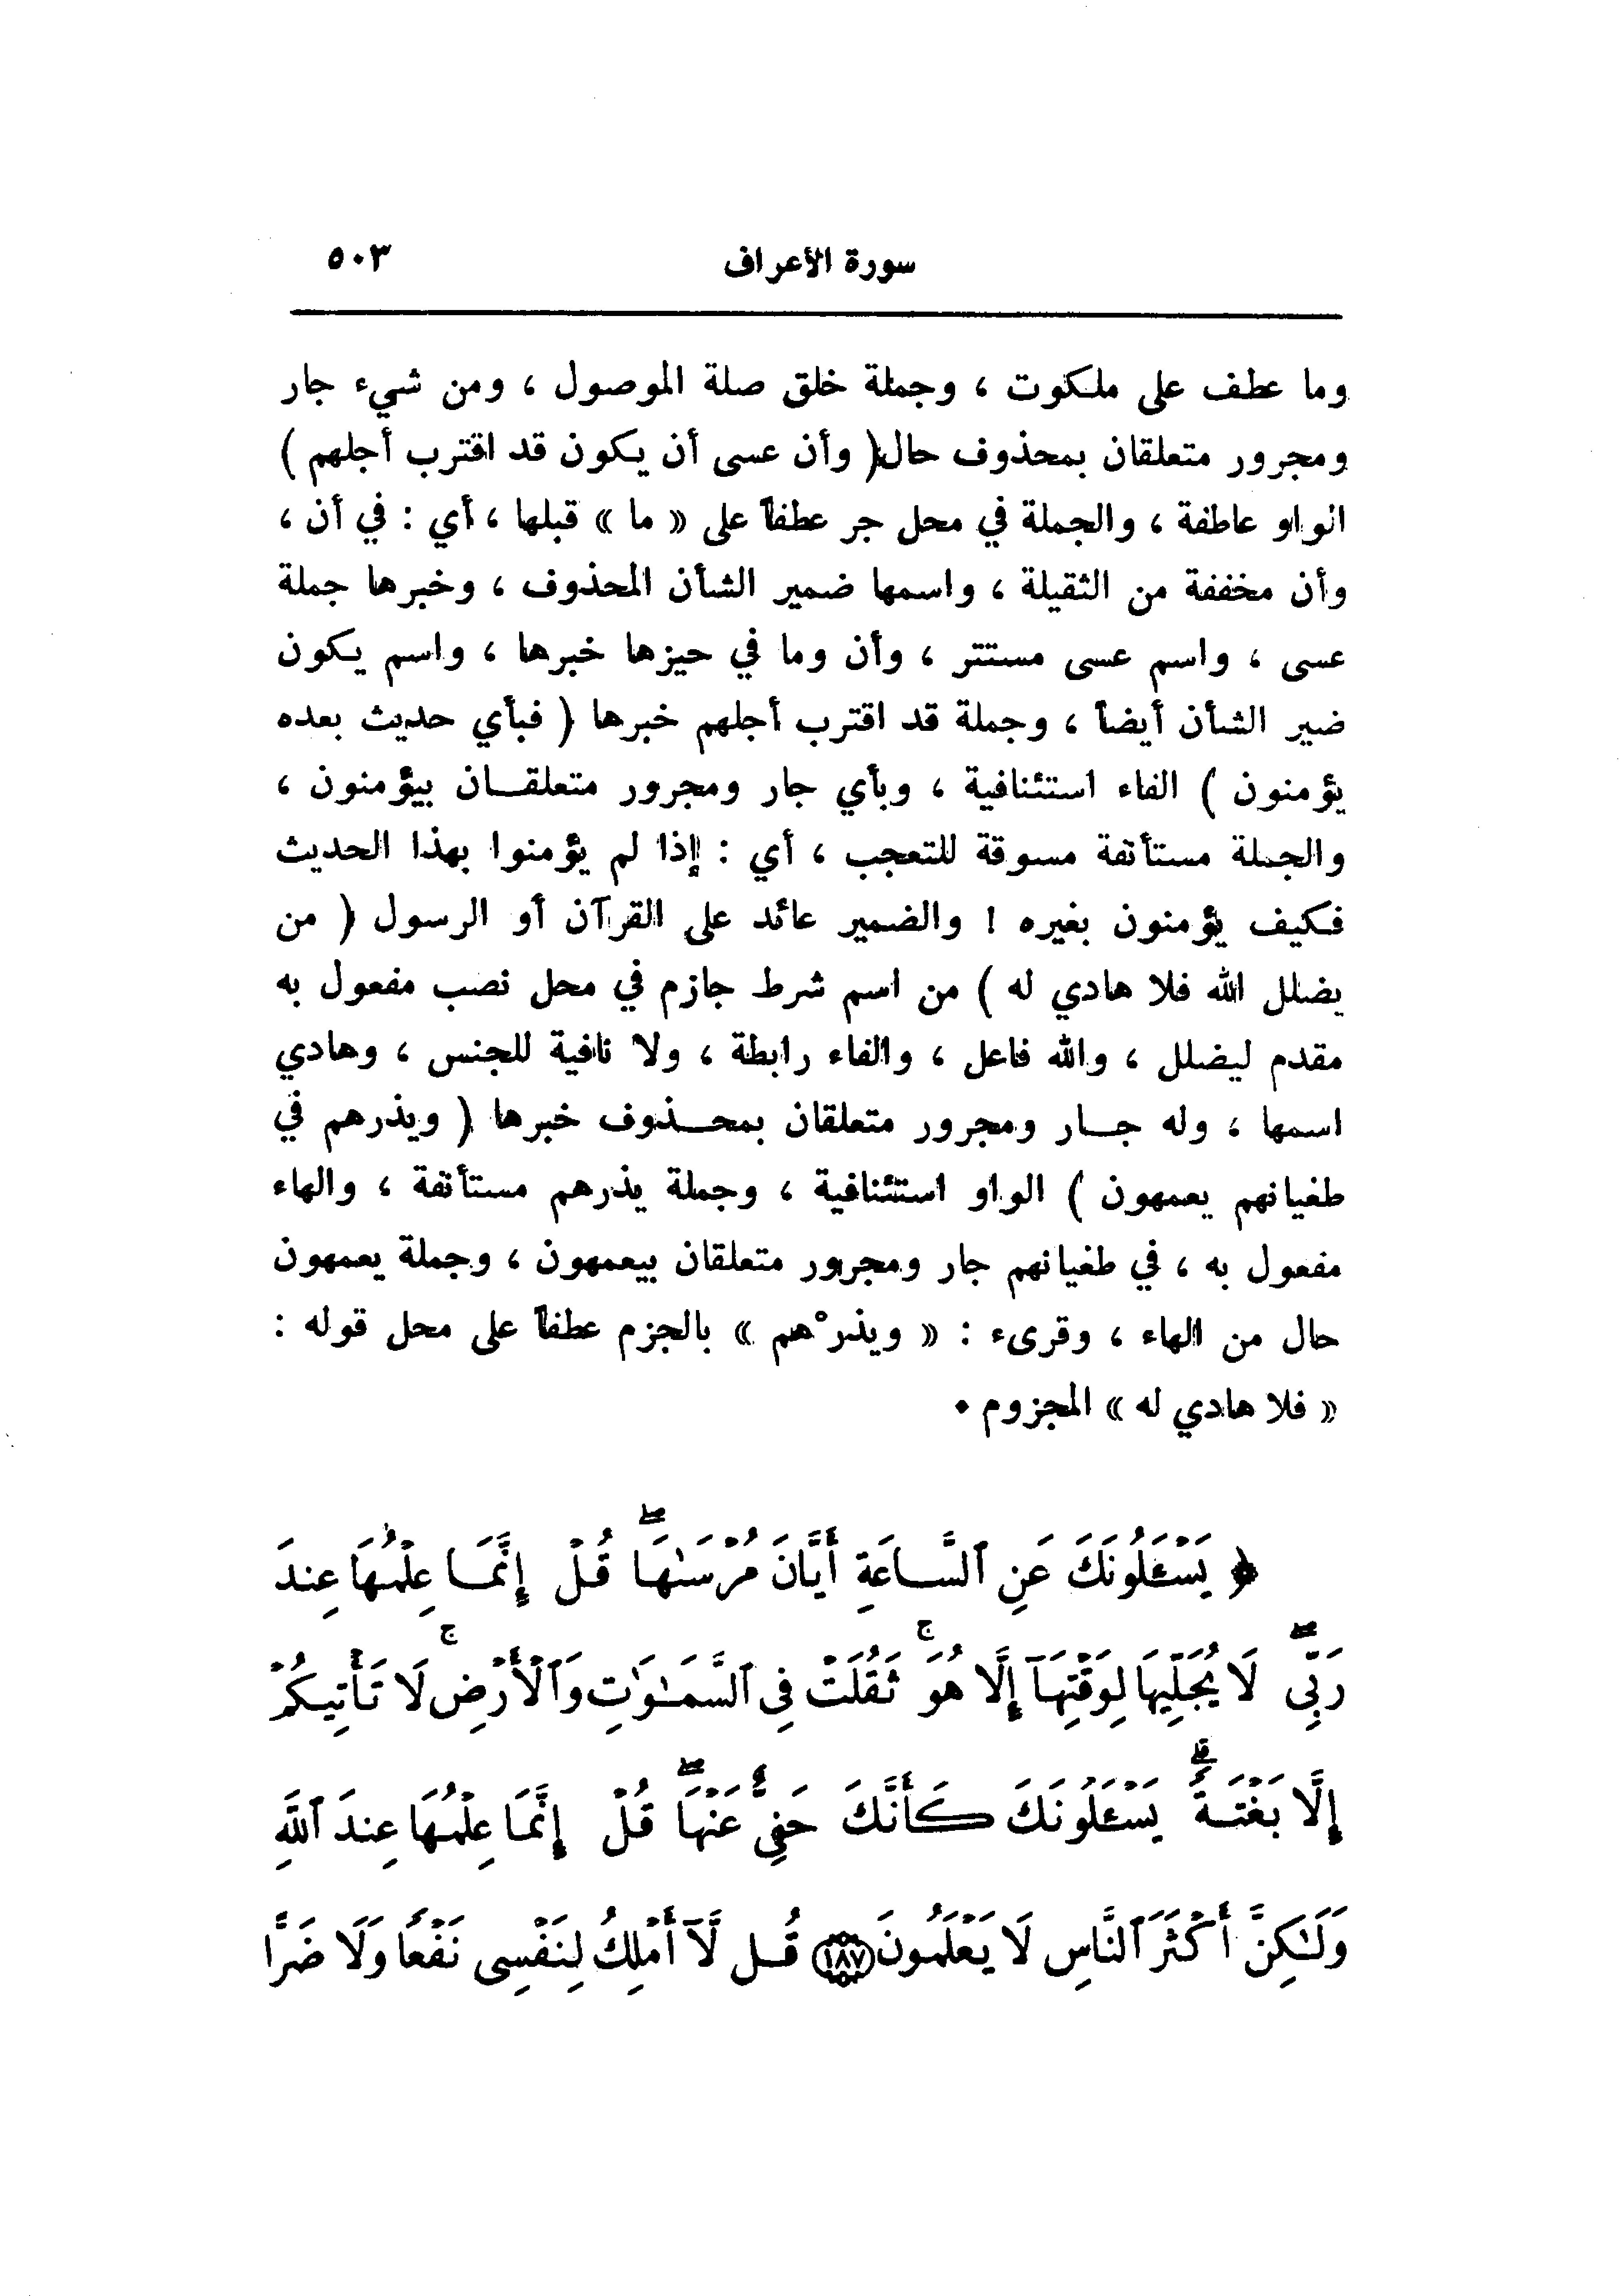 سورة الأعراف ٥٠٣
وما عطف على ملكوت ، وجملة خلق صلة الموصول ، ومن شيء جار
ومجرور متعلقان بمحذوف حال( وأن عسى أن يكون قد اقترب أجلهم )
الواو عاطفة ، والجملة في محل جر عطفاً على « ما » قبلها ، أي : في أن ،
وأن مخففة من الثقيلة ، واسمها ضمير الشأن المحذوف ، وخبرها جملة
عسى ، واسم عسى مستتر ، وأن وما في حيزها خبرها ، واسم يكون
ضير الشأن أيضاً ، وجملة قد اقترب أجلهم خبرها ( فبأي حديث بعده
يؤمنون ) الفاء استئنافية ، وبأي جار ومجرور متعلقـان بيؤمنون ،
والجملة مستأنفة مسوقة للتعجب ، أي : إذا لم يؤمنوا بهذا الحديث
فكيف يؤمنون بغيره ! والضمير عائد على القرآن أو الرسول ( من
يضلل الله فلا هادي له ) من اسم شرط جازم في محل نصب مفعول به
مقدم ليضلل ، والله فاعل ، والفاء رابطة ، ولا نافية للجنس ، وهادي
اسمها ، وله جـار ومجرور متعلقان بمحـذوف خبرها ( ويذرهم في
طغيانهم يعمهون ) الواو استئنافية ، وجملة يذرهم مستأنفة ، والهاء
مفعول به ، في طغيانهم جار ومجرور متعلقان بيعمهون ، وجملة يعمهون
حال من الهاء ، وقرىء : « ويذرْهم » بالجزم عطفاً على محل قوله :
« فلا هادي له » المجزوم •
﴿ يَسْـَٔلُونَكَ عَنِ ٱلسَّاعَةِ أَيَّانَ مُرْسَىٰهَا ۖ قُلْ إِنَّمَا عِلْمُهَا عِندَ
رَبِّى ۖ لَا يُجَلِّيهَا لِوَقْتِهَآ إِلَّا هُوَ ۚ ثَقُلَتْ فِى ٱلسَّمَـٰوَٰتِ وَٱلْأَرْضِ ۚ لَا تَأْتِيكُمْ
إِلَّا بَغْتَةً ۗ يَسْـَٔلُونَكَ كَأَنَّكَ حَفِىٌّ عَنْهَا ۖ قُلْ إِنَّمَا عِلْمُهَا عِندَ ٱللَّهِ
وَلَـٰكِنَّ أَكْثَرَ ٱلنَّاسِ لَا يَعْلَمُونَ ١٨٧ قُل لَّآ أَمْلِكُ لِنَفْسِى نَفْعًا وَلَا ضَرًّا